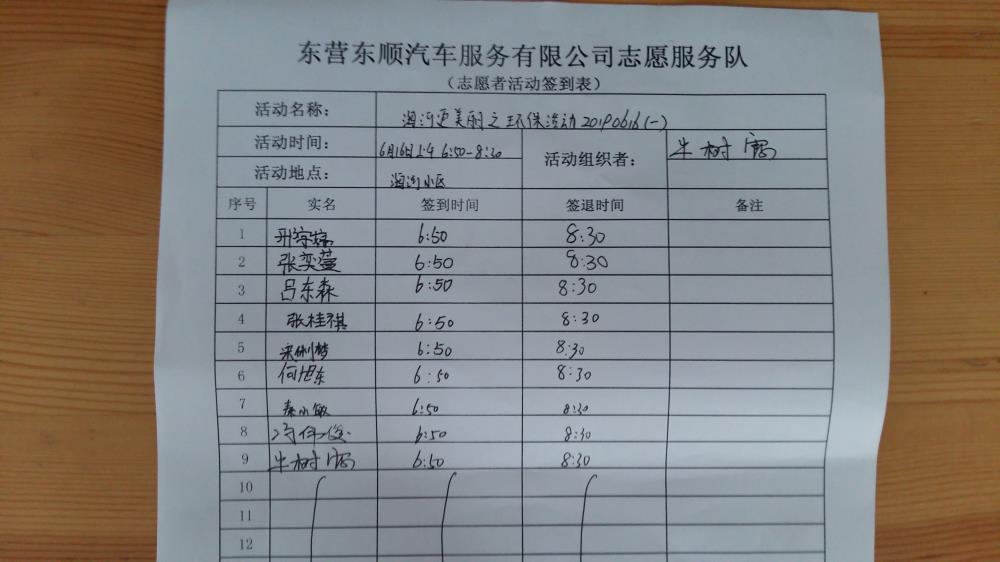 东营东顺汽车服务有限公司志愿服务队
（志愿者活动签到表）
活动名称： 海河更美丽之环保活动20190616(一)
活动时间： 6月16日 6:50-8:30 活动组织者： 牛树
活动地点： 海河小区
序号 实名 签到时间 签退时间 备注
1 6:50 8:30
2 张奕萱 6:50 8:30
3 吕东森 6:50 8:30
4 张桂祺 6:50 8:30
5 梦 6:50 8:30
6 何旭东 6:50 8:30
7 秦小敏 6:50 8:30
8 冯伟俊 6:50 8:30
9 牛树 6:50 8:30
10
11
12